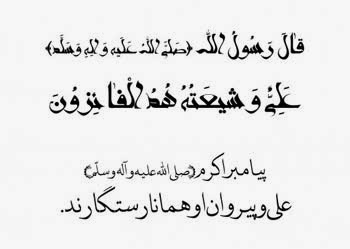 قالَ رَسُولُ اللهِ (صَلَّى اللهُ عَلَيهِ وَ الِهِ وَ سَلَّم)
عَلِيٌّ وَ شيعَتُهُ هُمُ الْفائِزُونَ
پیامبر اکرم (صلی الله علیه و آله وسلّم)
علی و پیروان او همانا رستگارند.